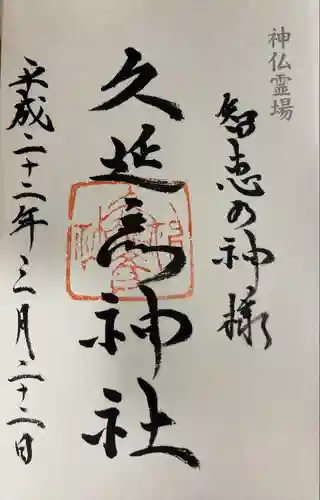 神仏霊場
智恵の神様
久延彦神社
平成二十二年三月二十二日